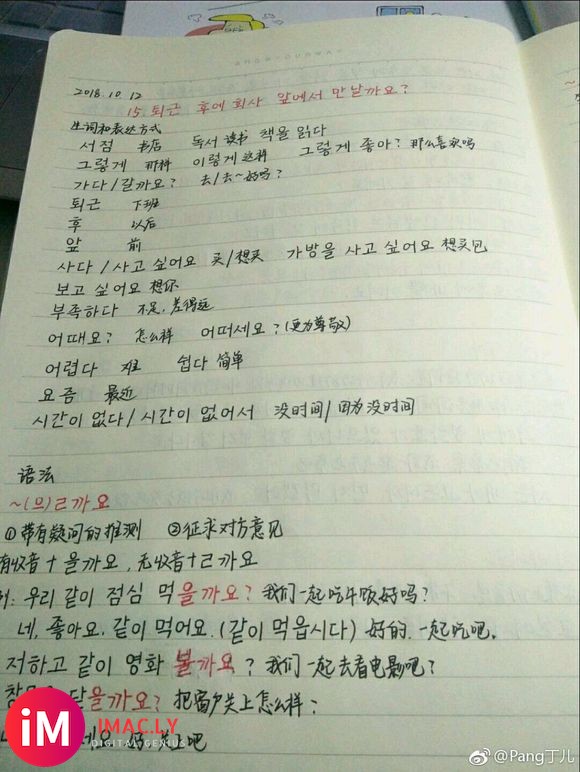 2018.10.12
15. 퇴근 후에 회사 앞에서 만날까요?
生词和表达方式
서점 书店 독서 读书 책을 읽다
그렇게 那样 이렇게 这样 그렇게 좋아? 那么喜欢吗
가다/갈까요? 去/去~好吗?
퇴근 下班
후 以后
앞 前
사다/사고 싶어요 买/想买 가방을 사고 싶어요 想买包
보고 싶어요 想你
부족하다 不足, 差得远
어때요? 怎么样 어떠세요? (更为尊敬)
어렵다 难 쉽다 简单
요즘 最近
시간이 없다/시간이 없어서 没时间/因为没时间
语法
~(으)ㄹ까요
①带有疑问的推测 ②征求对方意见
有收音+을까요, 无收音+ㄹ까요
우리 같이 점심 먹을까요? 我们一起吃午饭好吗?
네, 좋아요. 같이 먹어요. (같이 먹읍시다) 好的. 一起吃吧.
저하고 같이 영화 볼까요? 我们一起去看电影吧?
을까요? 把窗户关上怎么样?
上吧
iM IMAC.LY
DIGITAL GENIUS
@Pang丁儿